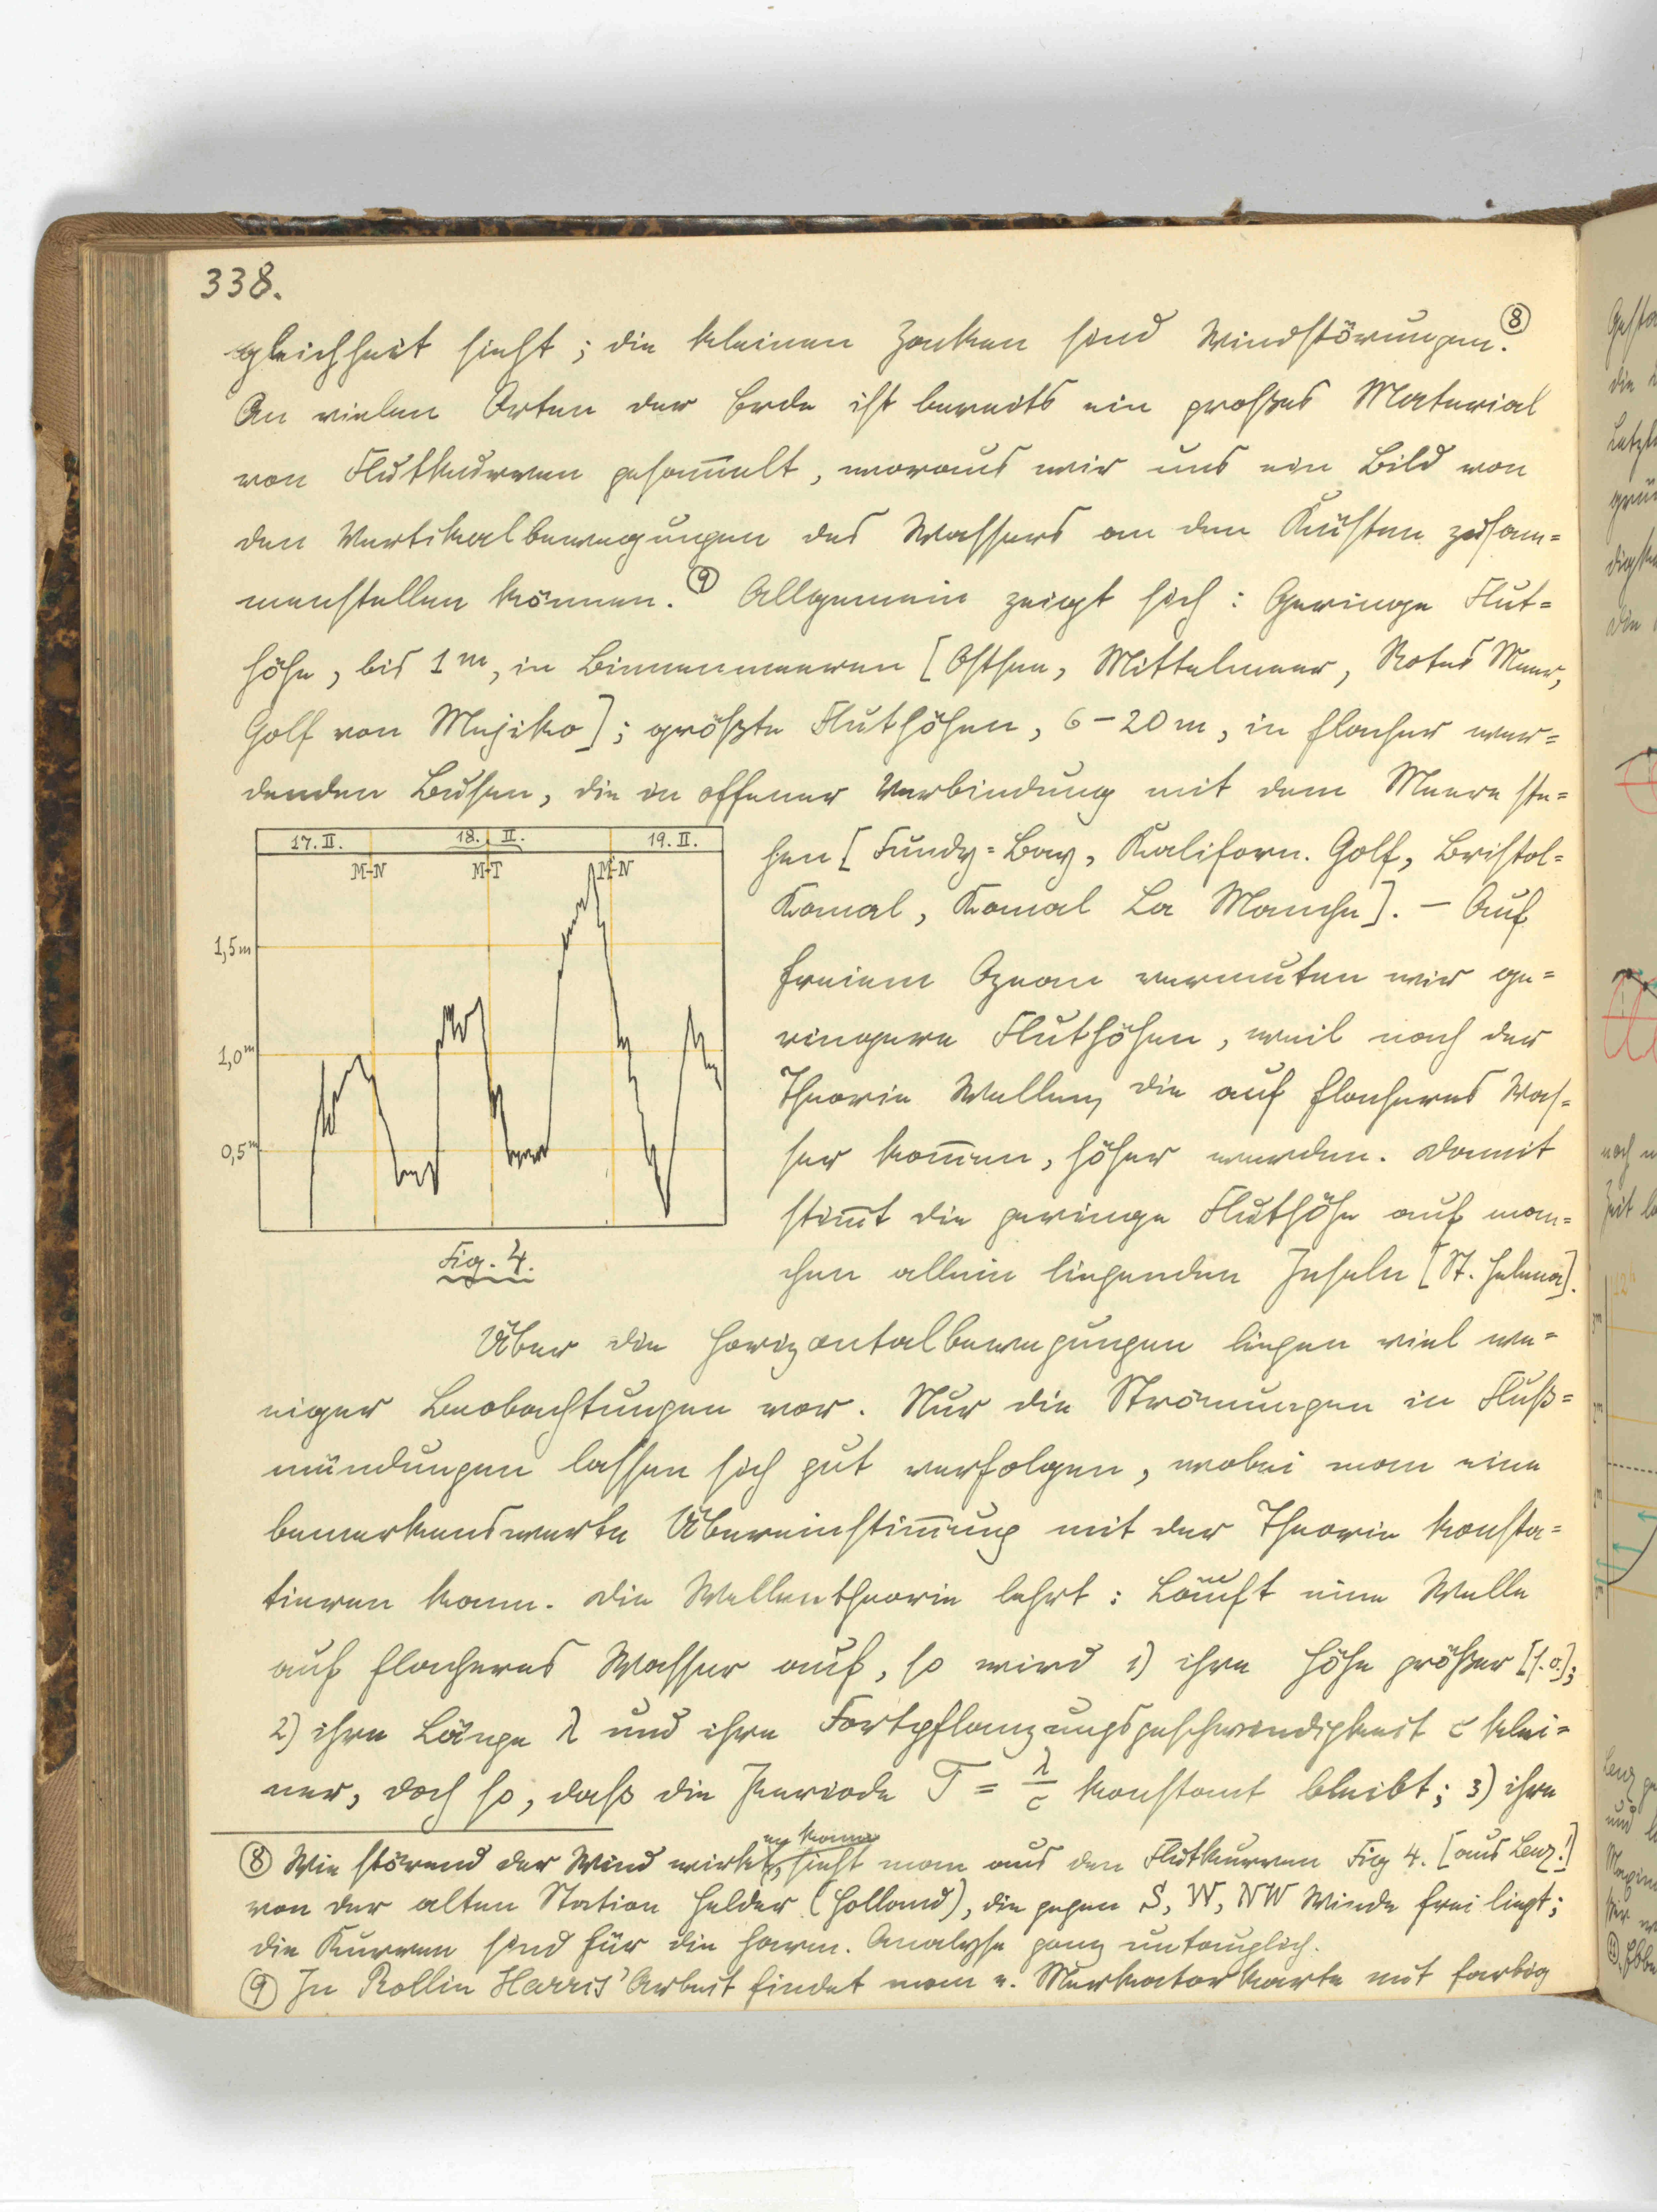 338.
gleichheit sieht; die kleinen Zacken sind Windstörungen. ⑧
An vielen Orten der Erde ist bereits ein großes Material
von Flutkurven gesam̅elt, woraus wir uns ein Bild von
den Vertikalbewegungen des Wassers an den Küsten zusam=
menstellen können. ⑨ Allgemein zeigt sich: Geringe Flut=
höhe, bis 1 m, in Binnenmeeren [Ostsee, Mittelmeer, Rotes Meer,
Golf von Mejiko]; größte Fluthöhen, 6–20 m, in flacher wer=
denden Busen, die in offener Verbindung mit dem Meere ste=
hen [Fundy=Bay, Kaliforn. Golf, Bristol=
Kanal, Kanal La Manche]. – Auf
freiem Ozean vermuten wir ge=
ringere Fluthöhen, weil nach der
Theorie Wellen, die auf flacheres Was=
ser kom̅en, höher werden. Damit
stim̅t die geringe Fluthöhe auf man=
chen allein liegenden Inseln [St. Helena].
17. II.
18. II.
19. II.
M-N
M-T
M-N
1,5 m
1,0 m
0,5 m
Fig. 4.
Über die Horizontalbewegungen liegen viel we=
niger Beobachtungen vor. Nur die Strömungen in Fluß=
mündungen lassen sich gut verfolgen, wobei man eine
bemerkenswerte Übereinstim̅ung mit der Theorie konsta=
tieren kann. Die Wellentheorie lehrt: Läuft eine Welle
auf flacheres Wasser auf, so wird 1) ihre Höhe größer [s.o.];
2) ihre Länge λ und ihre Fortpflanzungsgeschwindigkeit c klei=
ner, doch so, daß die Periode T = λ/c konstant bleibt; 3) ihre
⑧ Wie störend der Wind wirken kann, sieht man aus den Flutkurven Fig 4. [aus Lenz!]
von der alten Station Helder (Holland), die gegen S, W, NW Winde frei liegt;
die Kurven sind für die harm. Analyse ganz untauglich.
⑨ In Rollin Harris' Arbeit findet man e. Merkatorkarte mit farbig